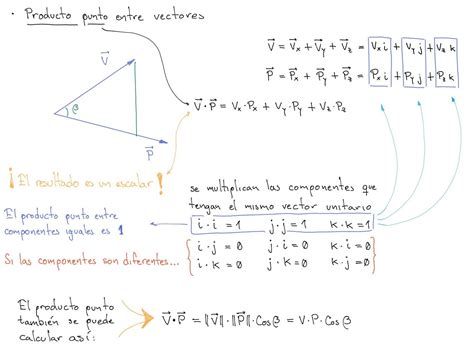 • Producto punto entre vectores
V⃗ = V⃗x + V⃗y + V⃗z = Vx i + Vy j + Vz k
P⃗ = P⃗x + P⃗y + P⃗z = Px i + Py j + Pz k
V⃗
β
P⃗
V⃗ · P⃗ = Vx·Px + Vy·Py + Vz·Pz
¡El resultado es un escalar!
se multiplican las componentes que
tengan el mismo vector unitario
El producto punto entre
componentes iguales es 1
i · i = 1 j · j = 1 k · k = 1
Si las componentes son diferentes...
i · j = 0 j · i = 0 k · i = 0
i · k = 0 j · k = 0 k · j = 0
El producto punto
también se puede
calcular así:
V⃗ · P⃗ = ‖V⃗‖ · ‖P⃗‖ · Cos β = V · P · Cos β